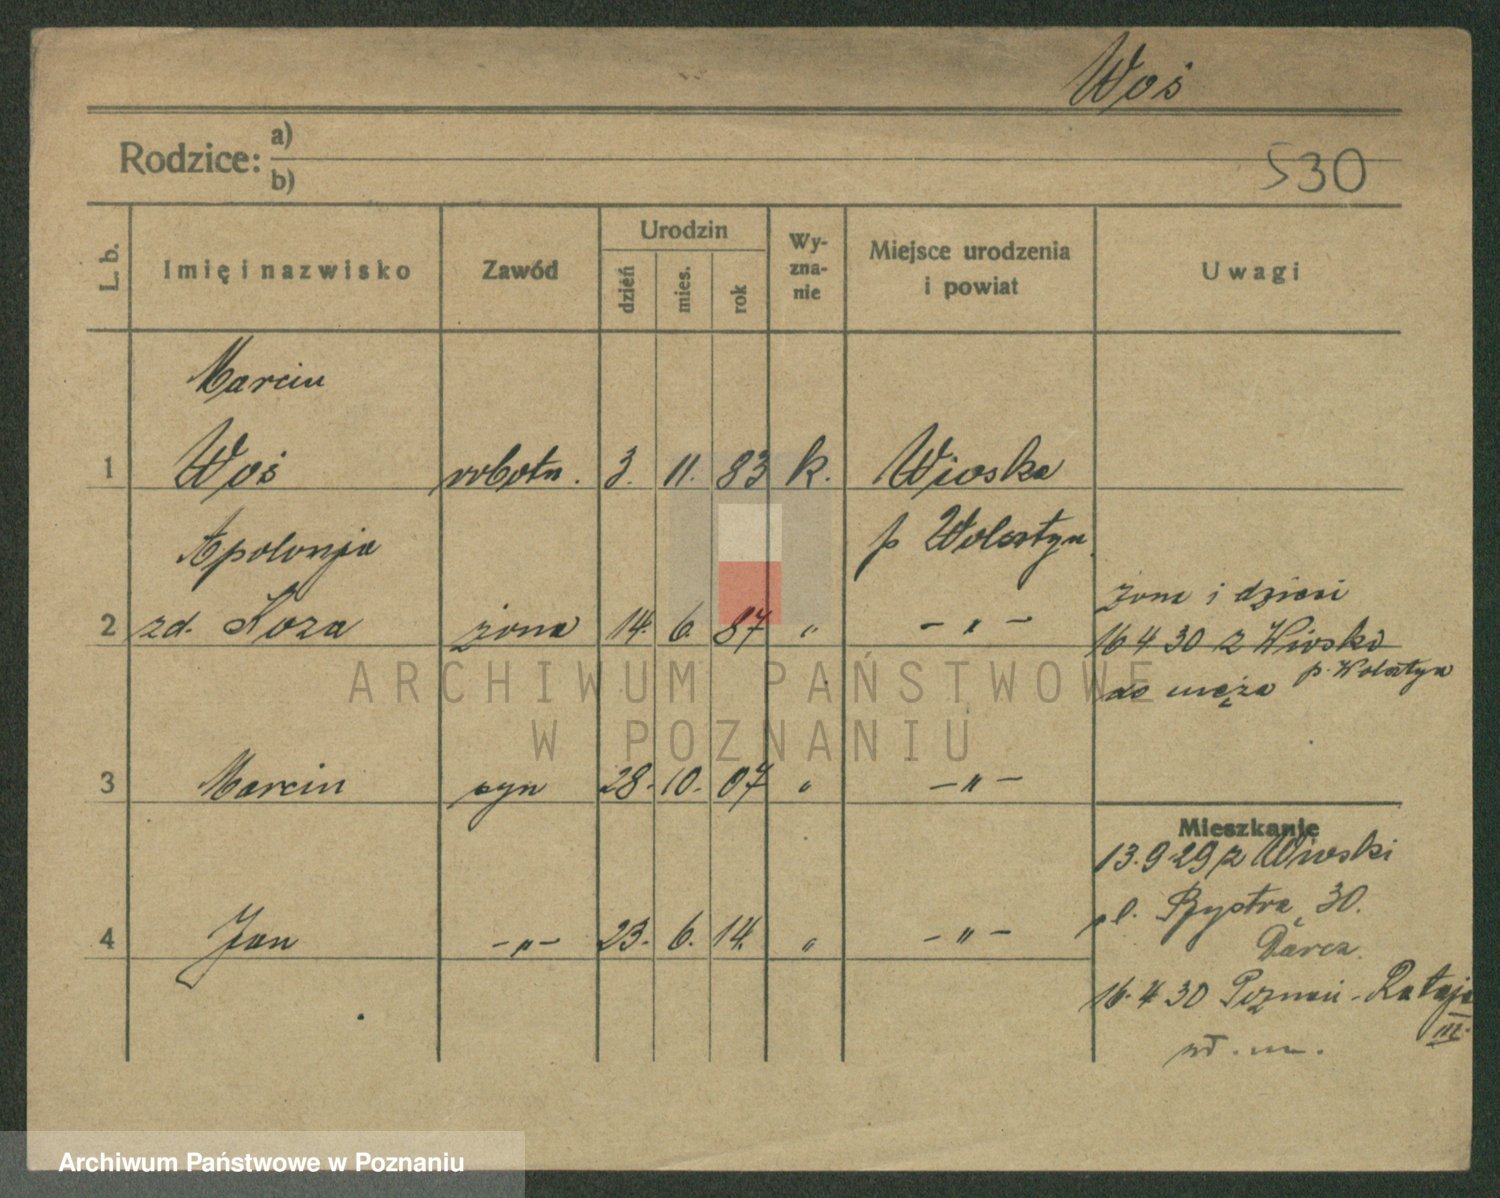 Woś
Rodzice: a)
b)
530
L. b. Imię i nazwisko Zawód Urodzin dzień mies. rok Wy-zna-nie Miejsce urodzenia i powiat Uwagi
Marcin
1 Woś robotn. 3. 11. 83 k. Wioska
Apolonja p Wolsztyn
2 zd. Koza żona 14. 6. 87 " - " -
żona i dzieci
16 4 30 z Wioski
p. Wolsztyn
do męża
3 Marcin syn 28. 10. 07 " - " -
Mieszkanie
13.9.29 z Wioski
ul. Bystra 30.
4 Jan - " - 23. 6. 14. " - " -
16.4 30 Poznań - Rataje
III.
ARCHIWUM PAŃSTWOWE
W POZNANIU
Archiwum Państwowe w Poznaniu